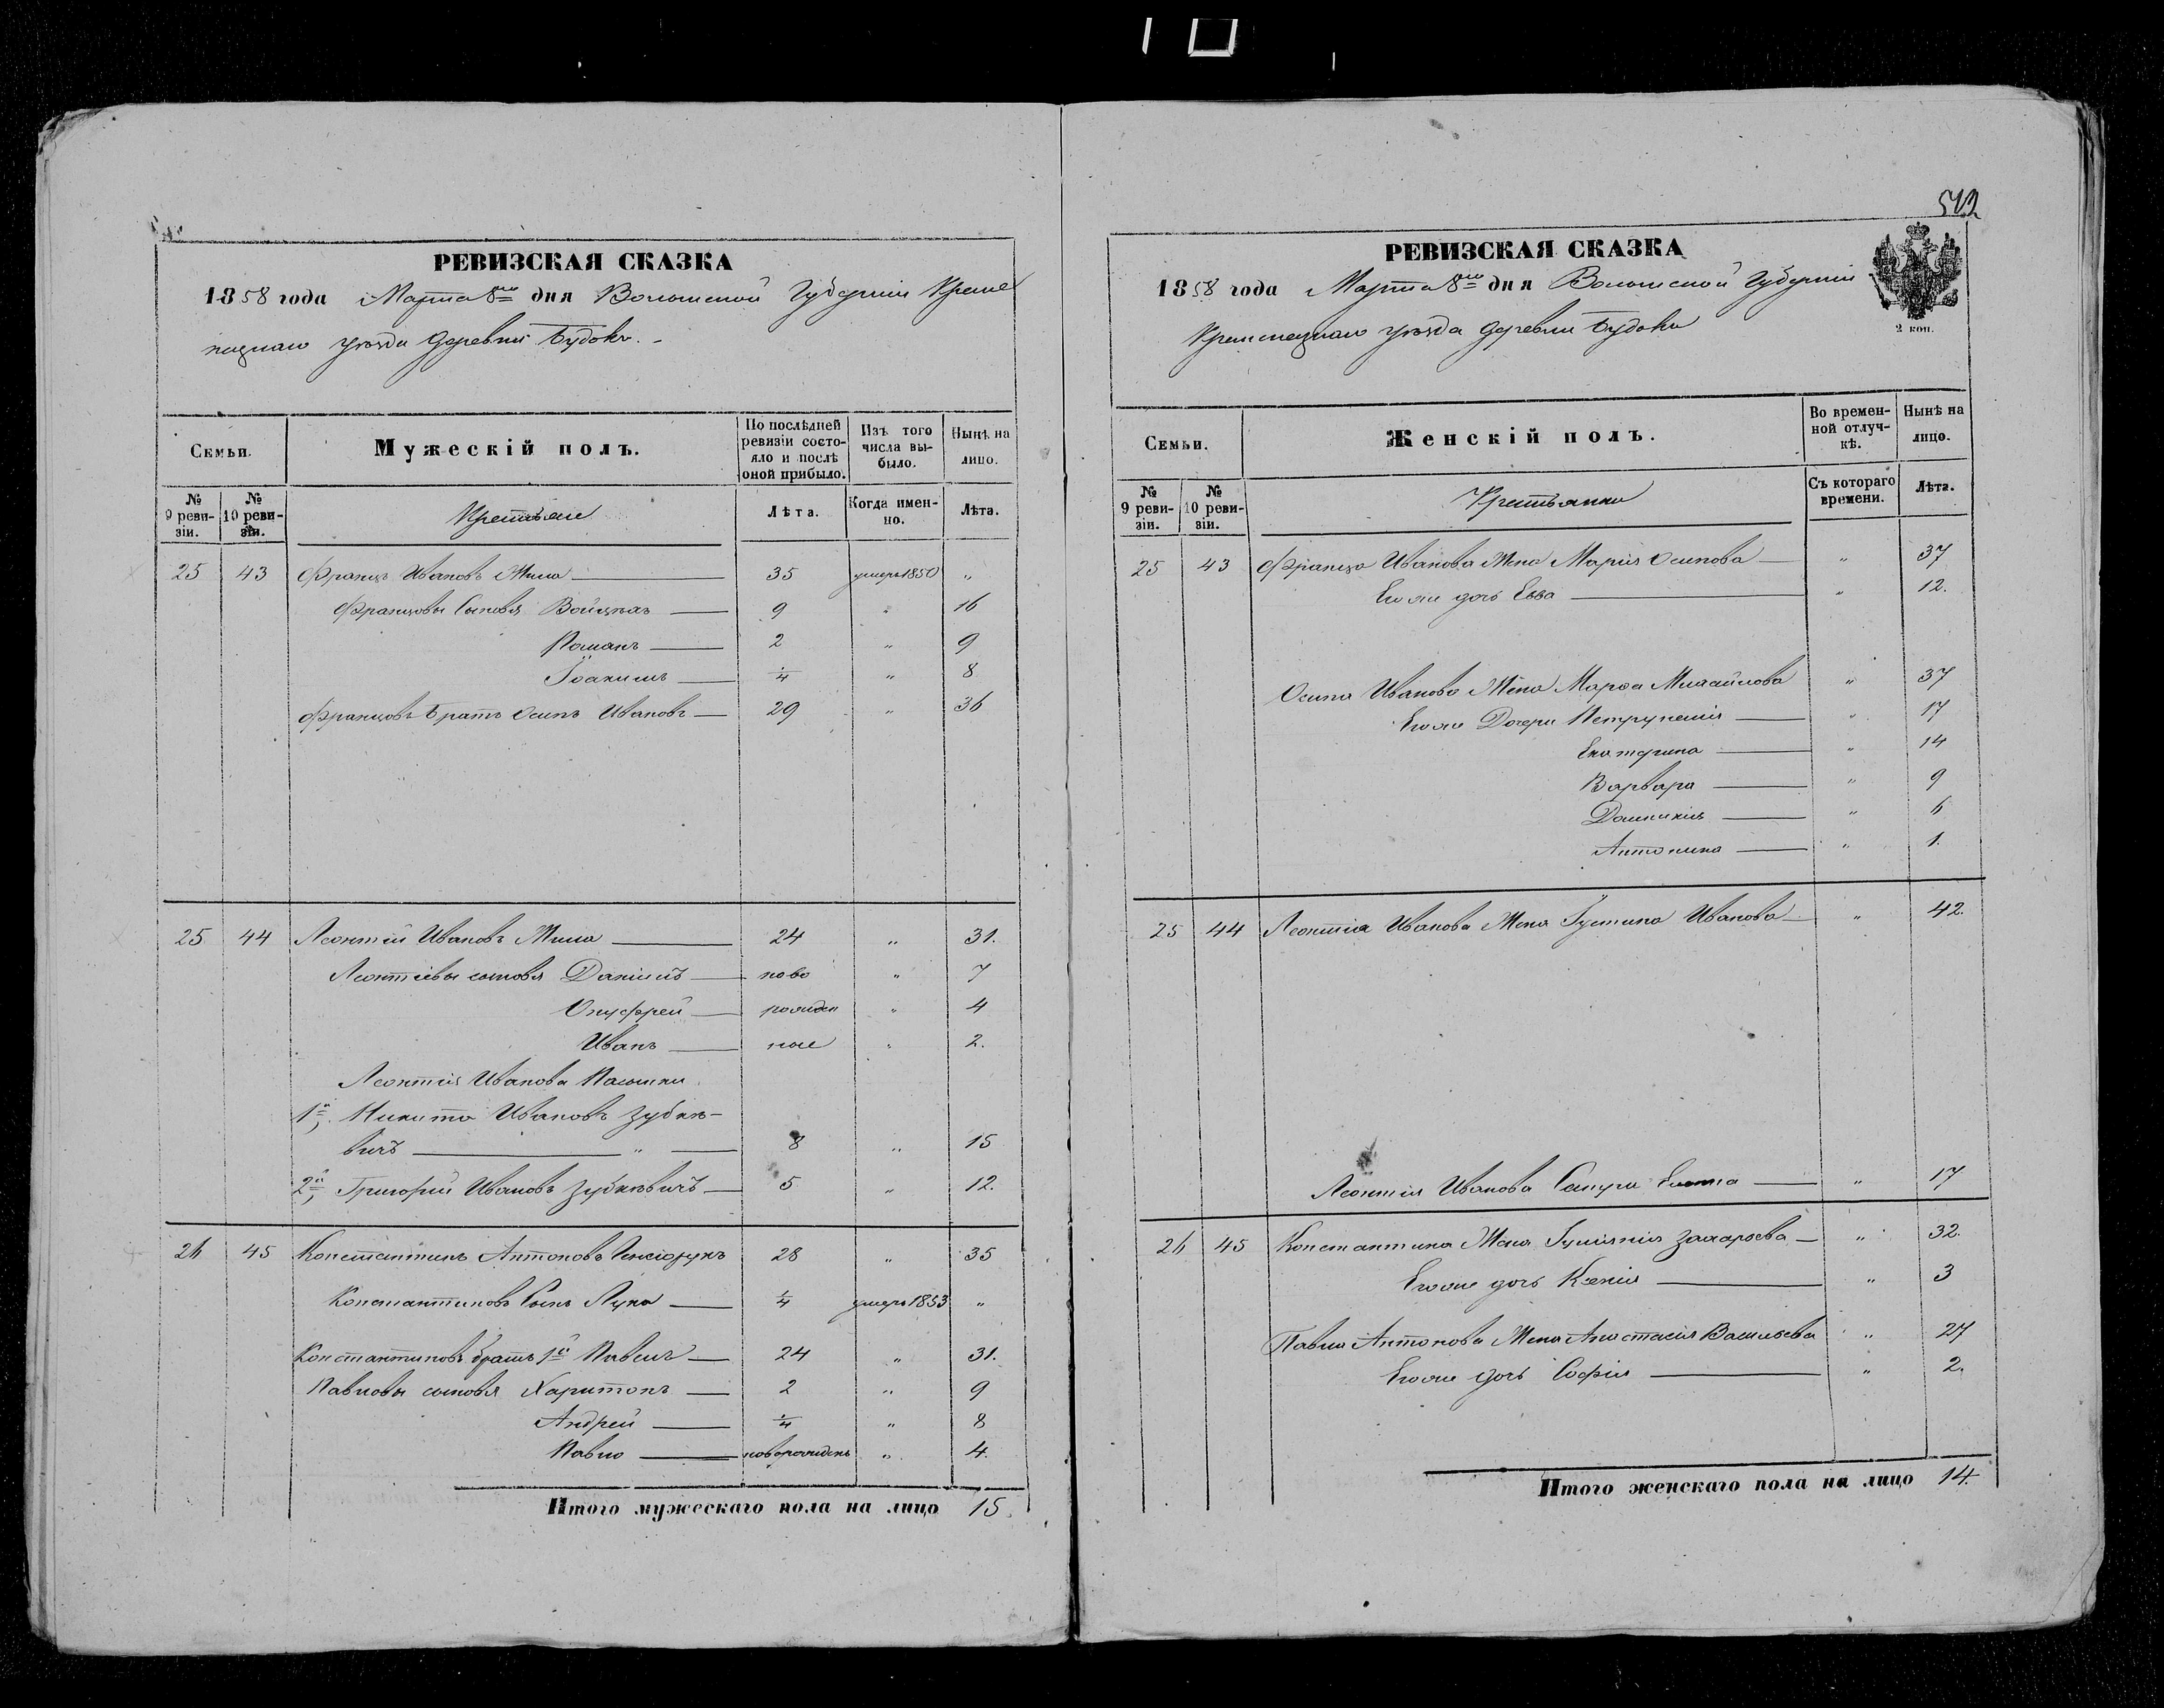 РЕВИЗСКАЯ СКАЗКА
1858 года Марта 8го дня Волынской Губернии Креме
нецкаго уѣзда деревни Будокъ.
Семьи.
Мужескій полъ.
По послѣдней ревизіи состояло и послѣ оной прибыло.
Изъ того числа выбыло.
Нынѣ на лицо.
№ 9 ревизіи.
№ 10 ревизіи.
Крестьяне
Лѣта.
Когда именно.
Лѣта.
25 43 Францъ Ивановъ 35 умеръ 1850 "
Францовы Сыновья Войцѣхъ 9 " 16
Романъ 2 " 9
Іоакимъ 1/4 " 8
Францовъ Братъ Осипъ Ивановъ 29 " 36
25 44 Леонтій Ивановъ 24 " 31.
Леонтіевы сыновья Даніилъ ново " 7
Онуфрей рожден " 4
Иванъ ные " 2.
Леонтія Иванова Пасынки
1й, Никита Ивановъ Зубкѣ-
вичъ " 8 " 15
2й, Григорій Ивановъ Зубкѣвичъ 5 " 12.
26 45 Константинъ Антоновъ 28 " 35
Константиновъ Сынъ Лука 1/4 умеръ 1853 "
Константиновъ братъ 1й Павелъ 24 " 31.
Павловы сыновья Харитонъ 2 " 9
Андрей 1/4 " 8
Павло новорожденъ " 4.
Итого мужескаго пола на лицо 15.
РЕВИЗСКАЯ СКАЗКА
1858 года Марта 8го дня Волынской Губерніи
Кременецкаго уѣзда деревни Будокъ
2 коп.
Семьи.
Женскій полъ.
Во временной отлучкѣ.
Нынѣ на лицо.
№ 9 ревизіи.
№ 10 ревизіи.
Крестьянки
Съ котораго времени.
Лѣта.
25 43 Франца Иванова Жена Марія Осипова " 37
Его же дочь Евва " 12.
Осипа Иванова Жена Марѳа Михайлова " 37
Его же Дочери Петрунелія " 17
Екатерина " 14
Варвара " 9
Домникія " 6
Антонина " 1.
25 44 Леонтія Иванова Жена Іустина Иванова " 42.
Леонтія Иванова " 17
26 45 Константина Жена Іуліянія Захарьева " 32.
Его же дочь Ксенія " 3
Павла Антонова Жена Анастасія Васильева " 27
Его же дочь Софія " 2.
Итого женскаго пола на лицо 14.